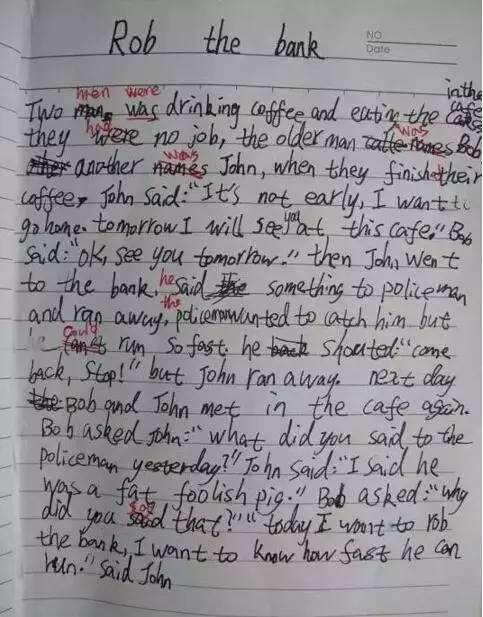 Rob the bank
NO
Date
in the
men were cafe
Two man was drinking coffee and eating the cakes
had was
they were no job, the older man names Bob
was
another names John, when they finished their
coffee, John said: "It's not early, I want to
you
go home. tomorrow I will see at this cafe." Bob
said: "ok, see you tomorrow." then John went
he
to the bank, said something to policeman
the
and ran away, policeman wanted to catch him but
could
he can't run so fast. he back shouted: "come
back, Stop!" but John ran away. next day
the Bob and John met in the cafe again.
Bob asked John: "what did you said to the
policeman yesterday?" John said: "I said he
was a fat foolish pig." Bob asked: "why
say
did you said that?" "today I want to rob
the bank, I want to know how fast he can
run." said John